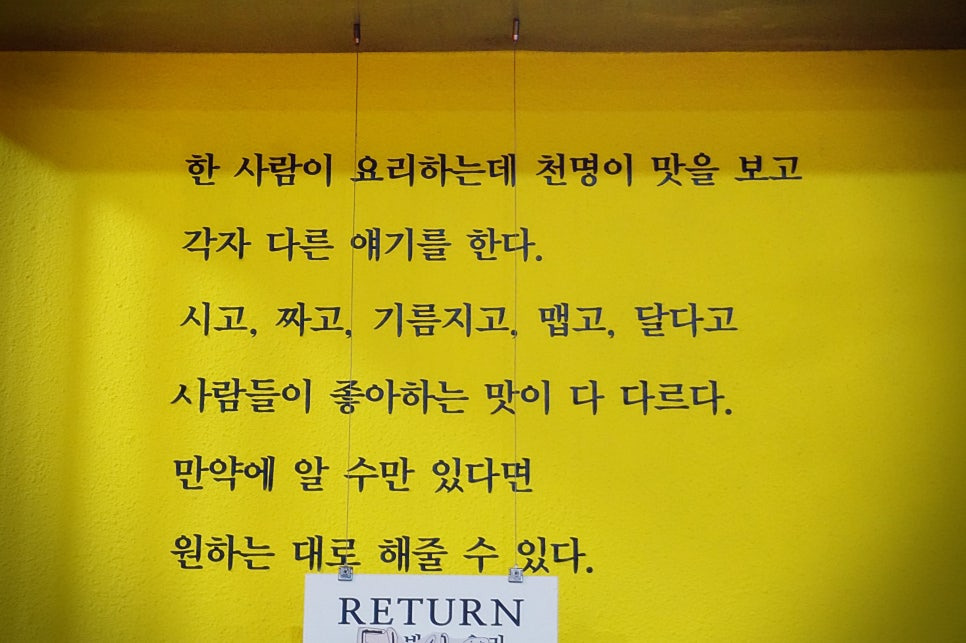 한 사람이 요리하는데 천명이 맛을 보고
각자 다른 얘기를 한다.
시고, 짜고, 기름지고, 맵고, 달다고
사람들이 좋아하는 맛이 다 다르다.
만약에 알 수만 있다면
원하는 대로 해줄 수 있다.
RETURN